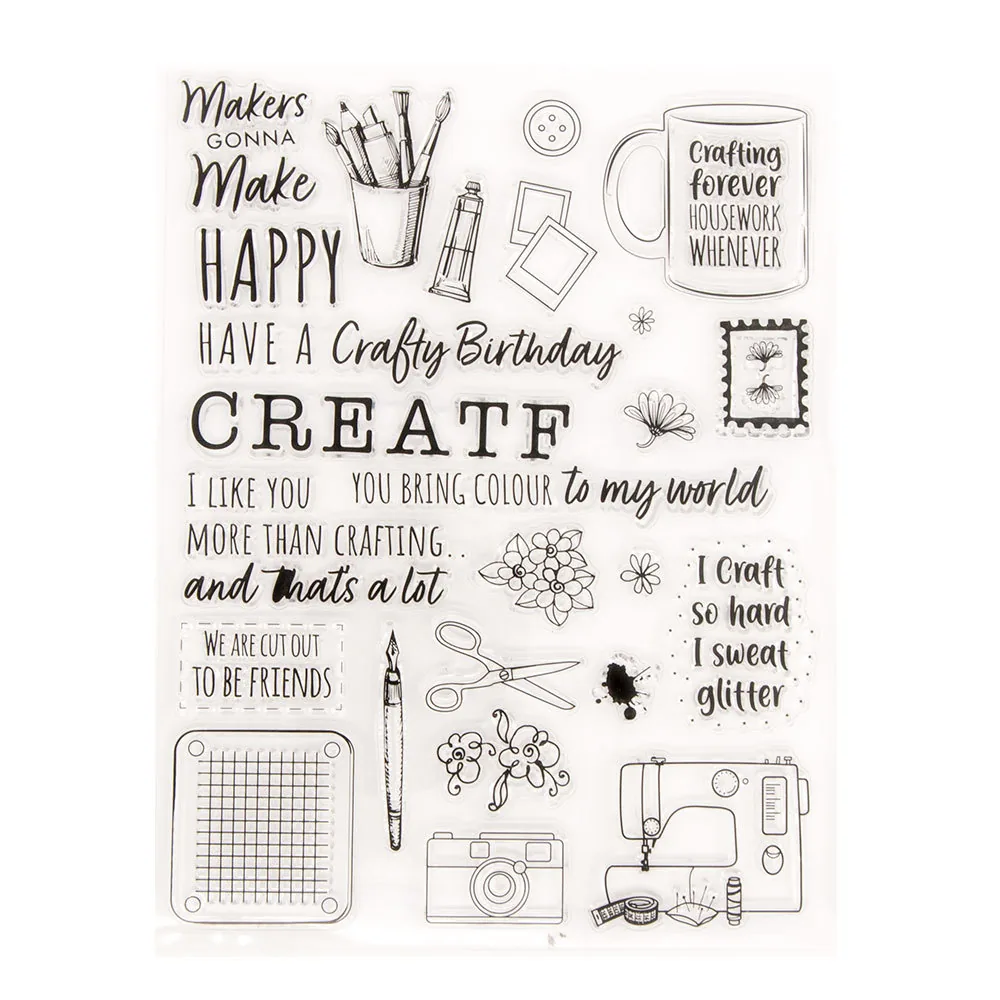 Makers
GONNA
Make
HAPPY
HAVE A Crafty Birthday
CREATF
I LIKE YOU
MORE THAN CRAFTING..
and that's a lot
YOU BRING COLOUR to my world
Crafting
forever
HOUSEWORK
WHENEVER
WE ARE CUT OUT
TO BE FRIENDS
I Craft
so hard
I sweat
glitter